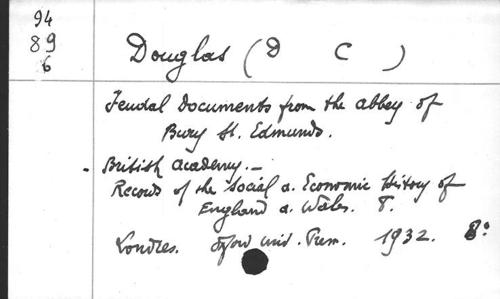 94
89
6
Douglas (D C)
Feudal Documents from the abbey of
Bury St. Edmunds.
- British academy. -
Records of the Social a. Economic History of
England a. Wales. 8.
Londres. Oxford Univ. Press. 1932. 8º